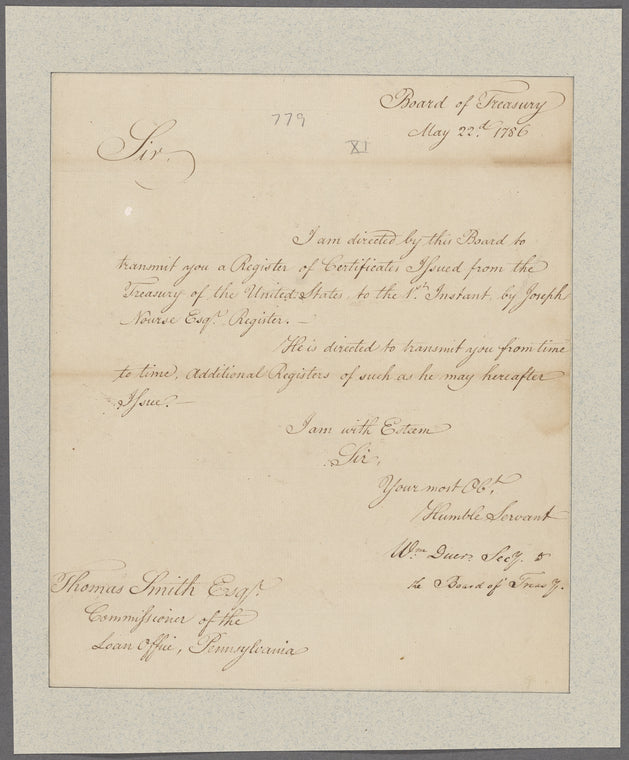 Board of Treasury
May 22.d 1786
779
XI
Sir.
I am directed by this Board to
transmit you a Register of Certificates Issued from the
Treasury of the United States, to the 1.st Instant, by Joseph
Nourse Esqr. Register. —
He is directed to transmit you from time
to time, Additional Registers of such as he may hereafter
Issue. —
I am with Esteem
Sir,
Your most Obt.
Humble Servant
Wm Duer. Secy. to
the Board of Treasy.
Thomas Smith Esqr.
Commissioner of the
Loan Office, Pennsylvania